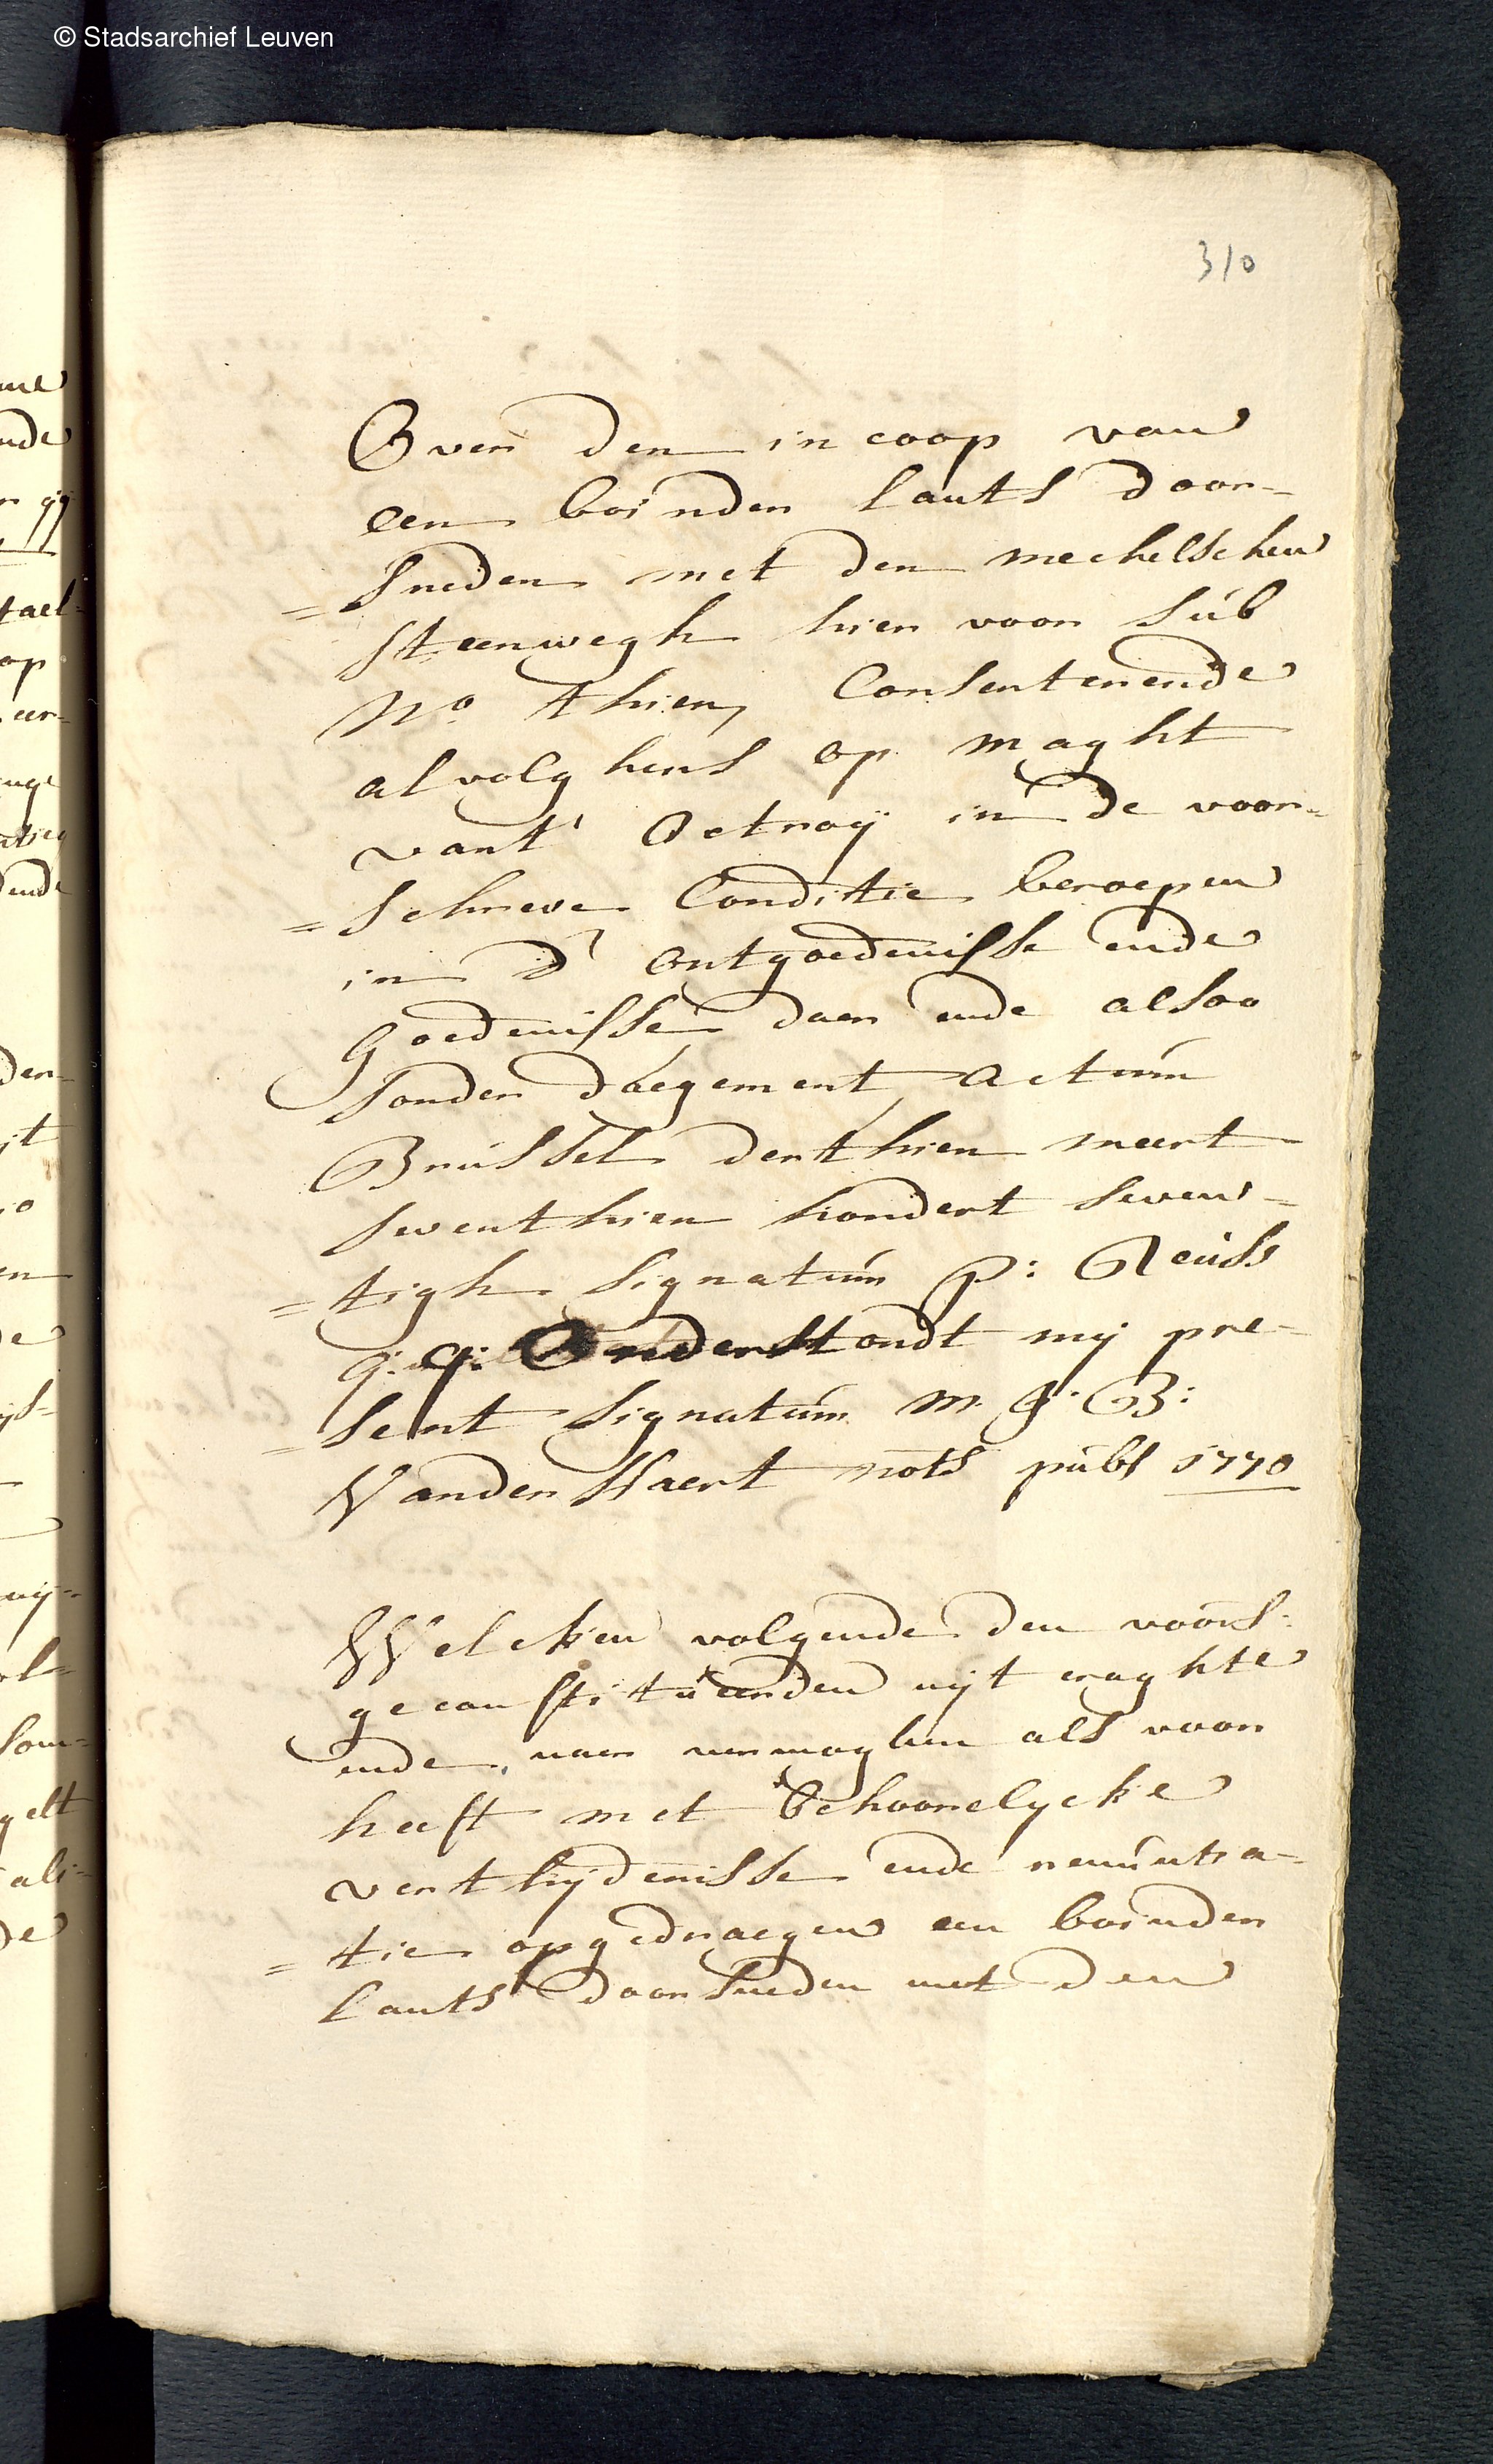 © Stadsarchief Leuven
310
Over den incoop van
een boinder lants door-
= sneden met den mechelschen
steenwegh hier voor sub
No. thien, Consenterende
alvolghens op maght
vant' Octroij in de voor-
= schreve Conditie beroepen
in d' ontgoedenisse ende
goedenisse daer ende alsoo
sonder daegement, actum
Brussel den thien meert
seventhien hondert seven-
= tigh signatum P: Reuss
q: q: Onderstondt mij pre-
= sent signatum M. J. B:
Vanden Haert nots pubs 1770
Welcken volgende den voors:
geconstitueerden uijt craghte
ende naer vermoghen als voor
heeft met behoorelycke
verthijdenisse ende renuntia-
= tie opgedraegen een boinder
lants doorsneden met den